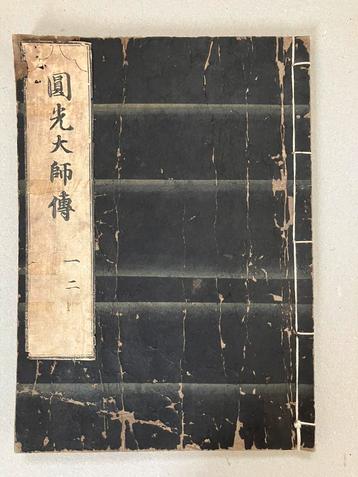 圓光大師傳
一二